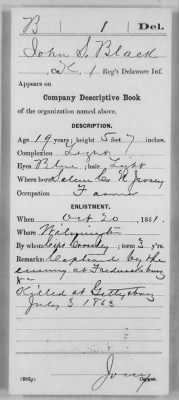 B 1 Del.
John S. Black
, Co. K, 1 Reg't Delaware Inf.
Appears on
Company Descriptive Book
of the organization named above.
DESCRIPTION.
Age 19 years; height 5 feet 7 inches.
Complexion Light
Eyes Blue; hair Light
Where born Salem Co N Jersey
Occupation Farmer
ENLISTMENT.
When Oct 20, 1861.
Where Wilmington
By whom Capt ; term 3 y'rs.
Remarks: Captured by the
enemy at Fredericksburg
Killed at Gettysburg
July 3 1863
Jones
Copyist.